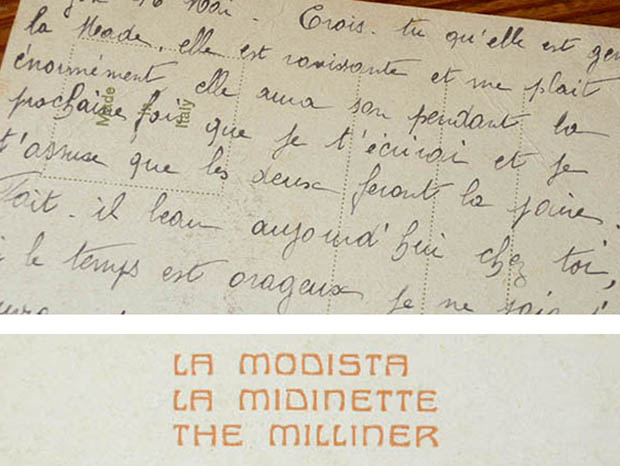 16 Mai. Crois-tu qu'elle est gen
la Made, elle est ravissante et me plait
énormément elle aura son pendant la
prochaine fois que je t'écrirai et je
t'assure que les deux feront la paire.
Fait-il beau aujourd'hui chez toi,
le temps est orageux je ne sais
Made in Italy
LA MODISTA
LA MIDINETTE
THE MILLINER